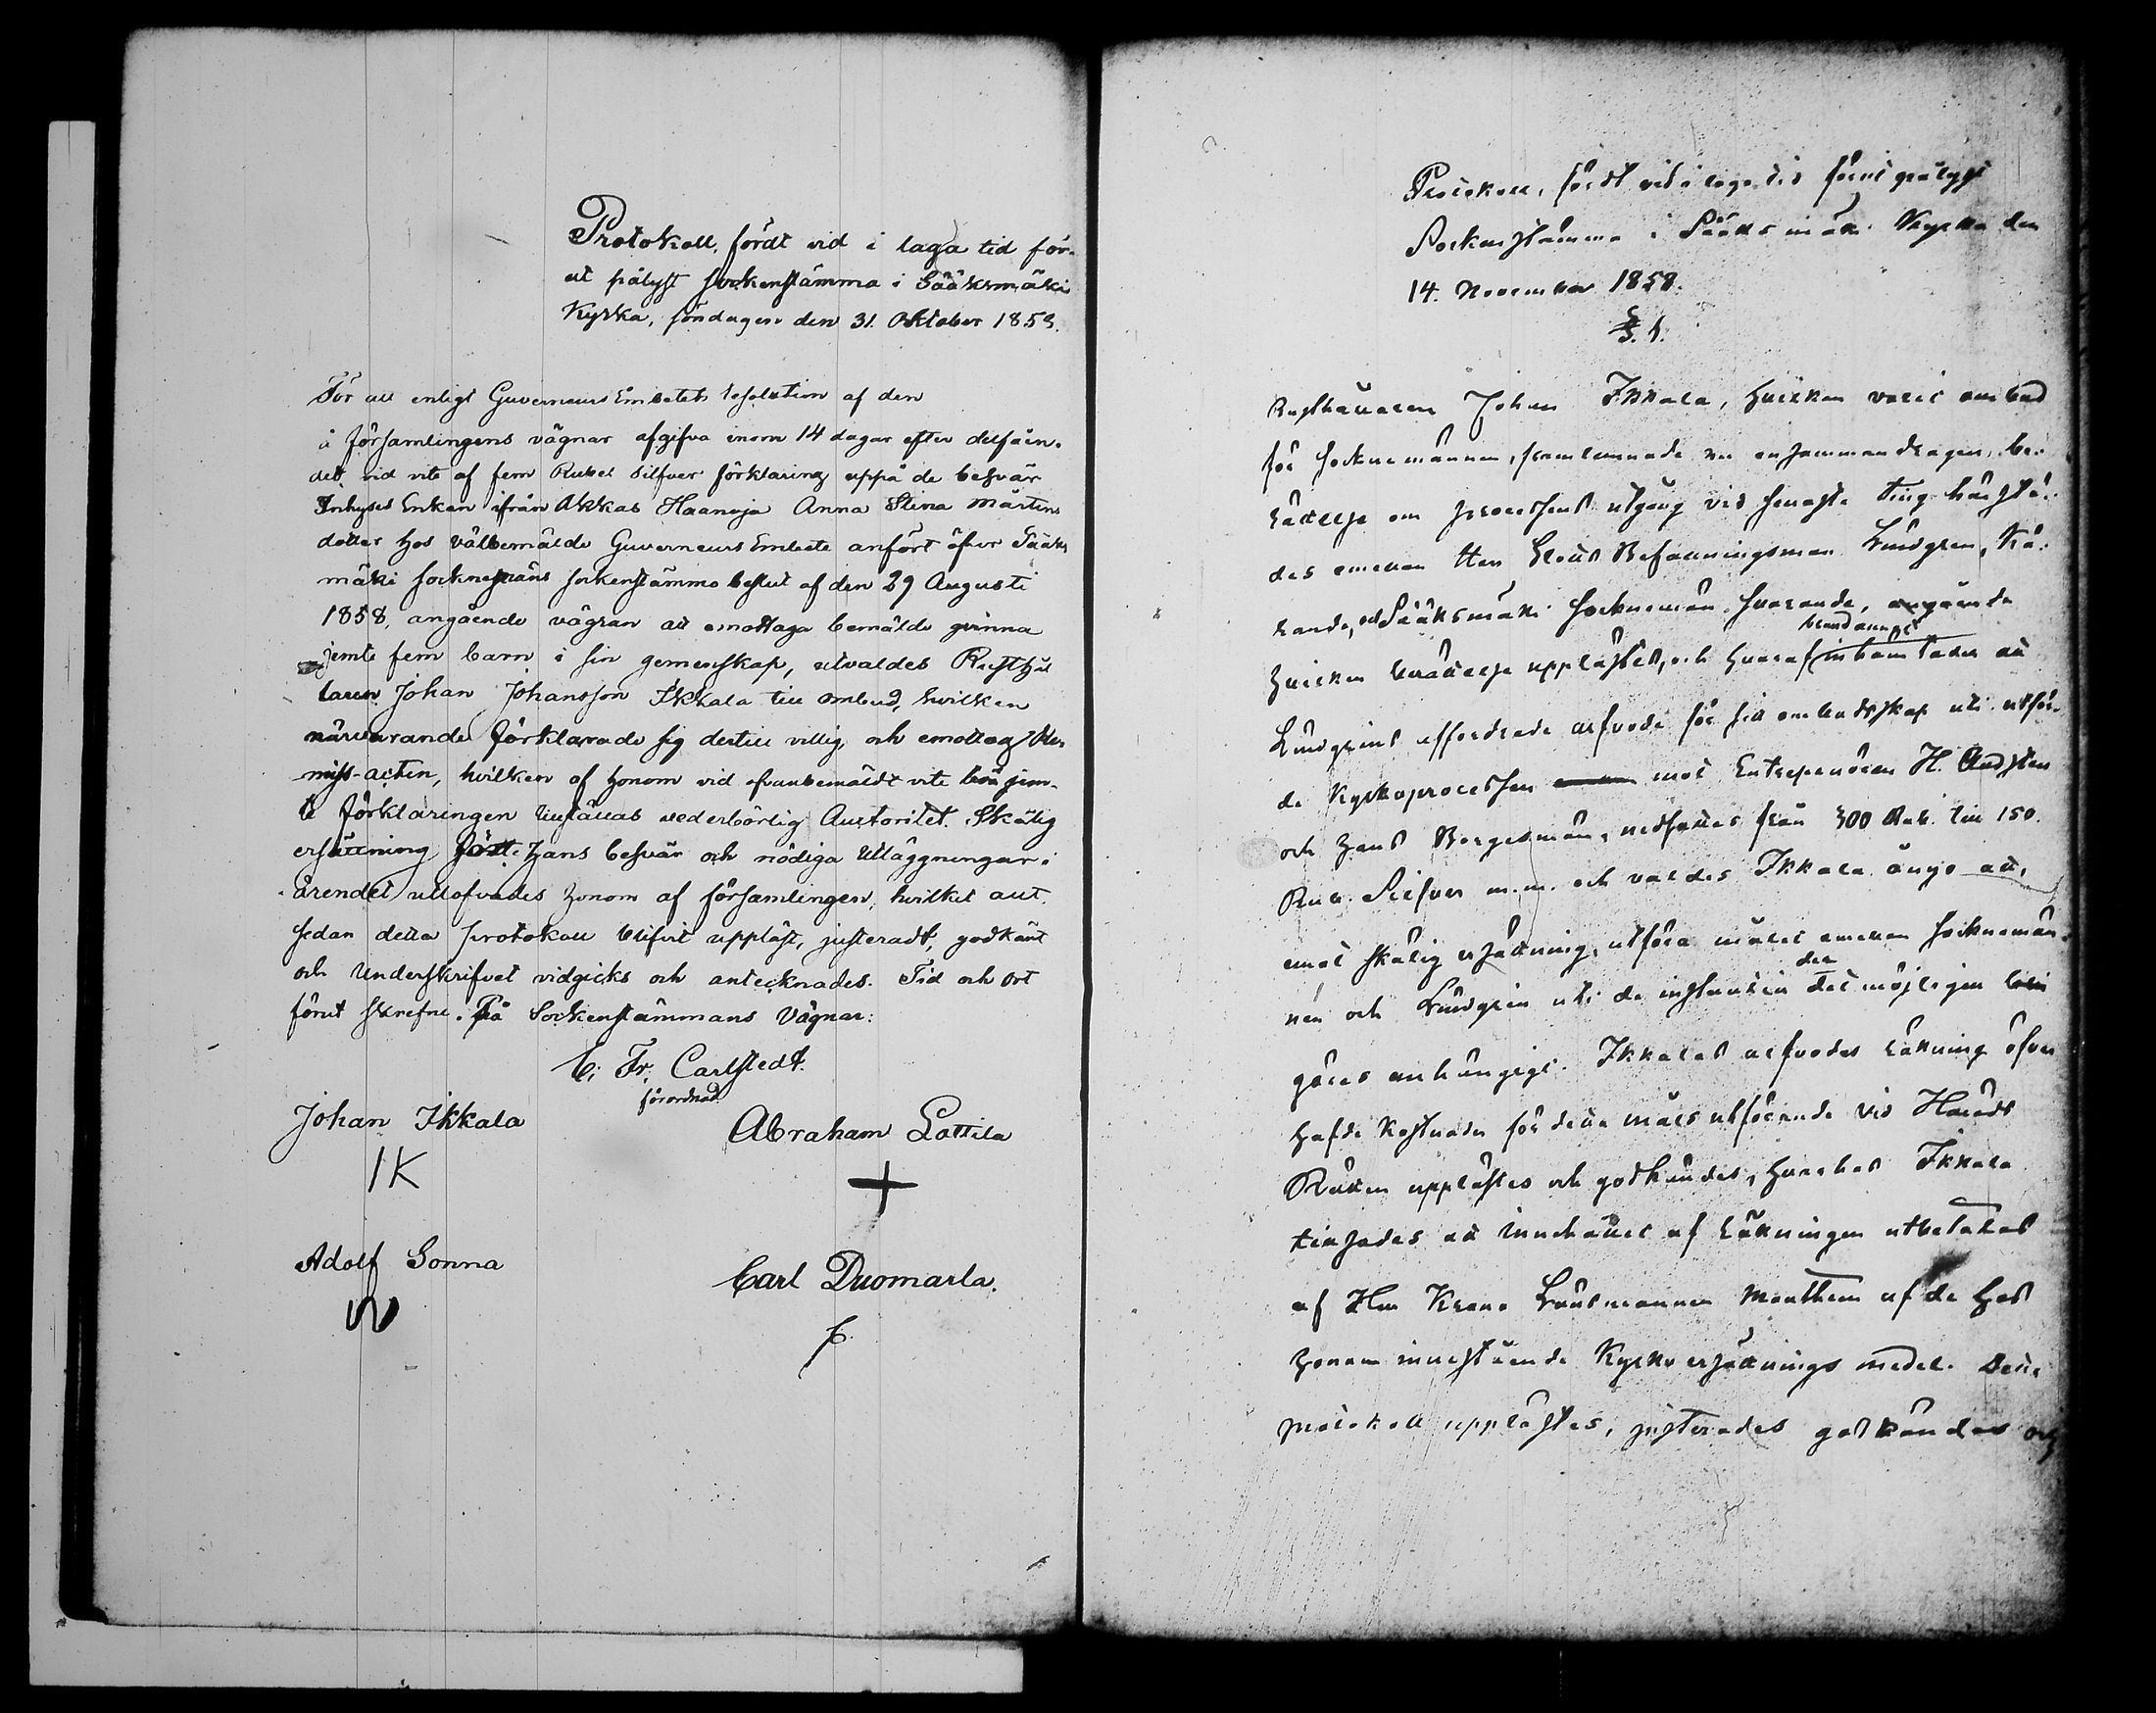 Protokoll, fördt vid i laga tid för-
ut pålyst sockenstämma i Sääksmäki
Kyrka, söndagen den 31. Oktober 1858.
För att enligt Guverneurs Embetets resolution af den
å församlingens vägnar afgifva inom 14 dagar efter delfåen-
det, vid vite af fem Rubel Silfver förklaring uppå de besvär
Inhyses Enkan ifrån Akkas Haanoja Anna Stina Mårtens
dotter hos välbemälde Guverneurs Embete anfört öfver Sääks
mäki socknemäns sockenstämmo beslut af den 29 Augusti
1858, angående vägran att emottaga bemälde qvinna
jemte fem barn i sin gemenskap, utvaldes Rusthål
laren Johan Johansson Ikkala till ombud, hvilken
närvarande förklarade sig dertill villig och emottog Re-
miss-acten, hvilken af honom vid ofvanbemäldt vite bör jem-
te förklaringen tillställas vederbörlig Auctoritet. Skälig
ersättning för hans besvär och nödiga utläggningar i
ärendet utlofvades honom af församlingen, hvilket allt
sedan detta protokoll blifvit uppläst, justeradt, godkänt
och underskrifvet vidgicks och antecknades. Tid och ort
förut skrefne. På Sockenstämmans Vägnar:
C. Fr. Carlstedt.
förordnad
Johan Ikkala
IK
Abraham Lottila
Adolf Sonna
Carl Duomarla.
Protokoll, fördt vid i laga tid förut pålyst
Sockenstämma i Sääksmäki Kyrka den
14. November 1858.
§. 1.
Rusthållaren Johan Ikkala, hvilken varit ombud
för socknemännen, framlemnade nu en sammandragen be-
rättelse om processens utgång vid senaste Ting hållet å
des emellan Herr Befallningsman Lundgren, Kä-
rande, och Sääksmäki socknemän, Svarande, angående
bland annat
hvilken berättelse upplästes, och hvaraf inhämtades att
Lundgrens affordrade arfvode för sin ombudskap uti utför-
de Kyrkoprocessen mot Entreprenören H. Andsten
och hans Borgesmän, nedsattes från 300 Rub. till 150.
Rub. Silfver m.m. och valdes Ikkala ånyo att,
emot skälig ersättning, utföra målet emellan socknemän-
der
nen och Lundgren uti de instantier det möjligen
göres anhängigt. Ikkalas arfvodes räkning öfver
hafde kostnader för detta måls utförande vid Härads
Rätten upplästes och godkändes, hvarhos Ikkala
tillsades att innehållet af räkningen utbetalas
af Herr Krono Länsmannen Monthen af de hos
honom innestående Kyrko ersättnings medel. Detta
protokoll upplästes, justerades godkändes och